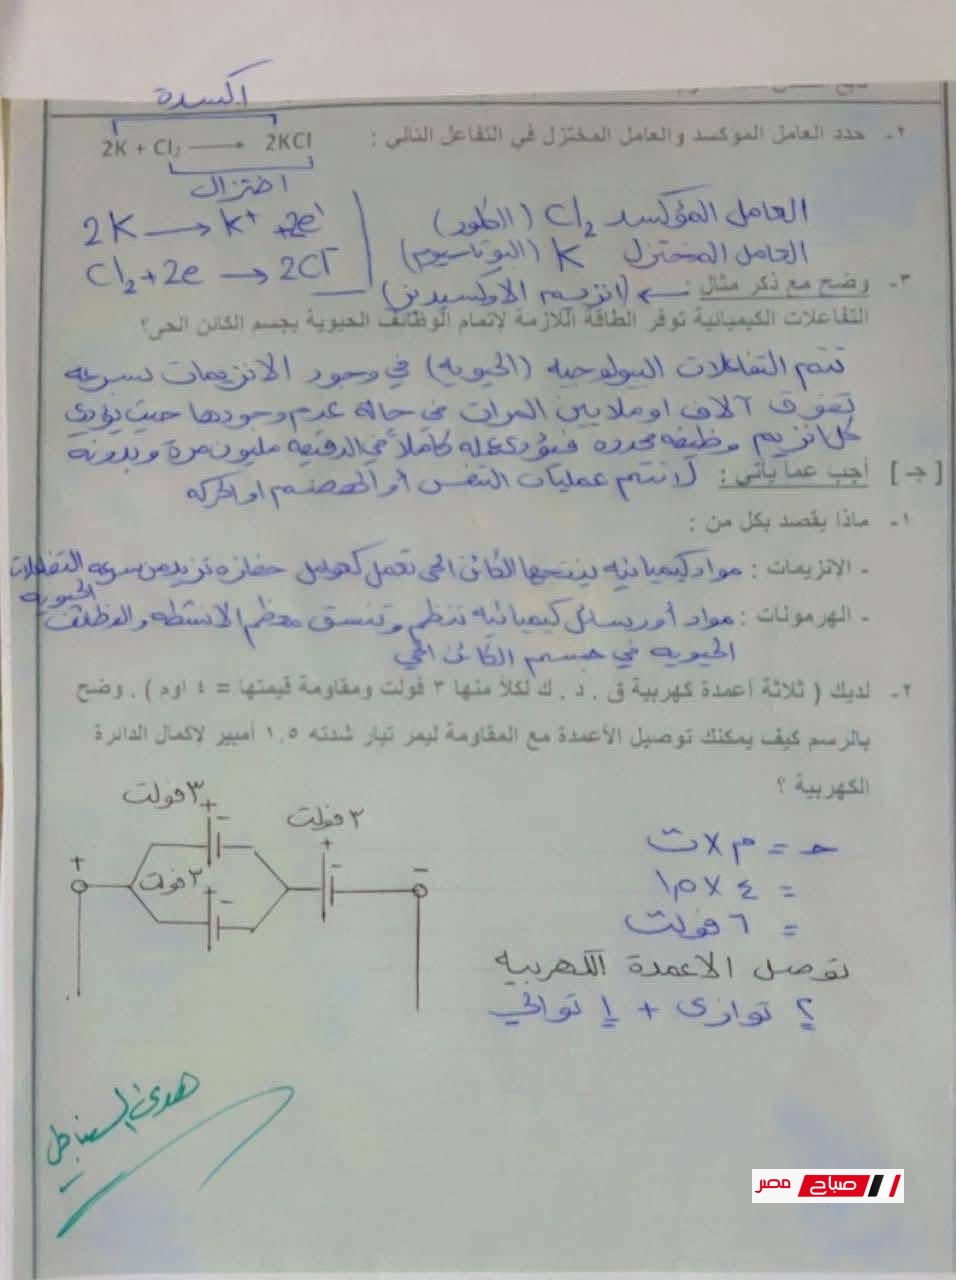 اكسدة
٢- حدد العامل المؤكسد والعامل المختزل في التفاعل التالي :
2K + Cl₂ ⟶ 2KCl
اختزال
العامل المؤكسد Cl₂ (الكلور)
العامل المختزل K (البوتاسيوم)
2K ⟶ K⁺ + 2e⁻
Cl₂ + 2e ⟶ 2Cl⁻
٣- وضح مع ذكر مثال : ← (انزيم الاوكسيديز)
التفاعلات الكيميائية توفر الطاقة اللازمة لإتمام الوظائف الحيوية بجسم الكائن الحي؟
تتم التفاعلات البيولوجيه (الحيويه) في وجود الانزيمات بسرعه
تفوق آلاف او ملايين المرات في حالة عدم وجودها حيث يؤدي
كل انزيم وظيفه محدده فيؤدى عمله كاملاً في الدقيقه مليون مرة وبدونه
[ جـ ] أجب عما يأتي : لا تتم عمليات التنفس أو الهضم او الحركه
١- ماذا يقصد بكل من :
- الانزيمات : مواد كيميائيه ينتجها الكائن الحى تعمل كعوامل حفازه تزيد من سرعه التفاعلات
الحيويه
- الهرمونات : مواد أو رسائل كيميائيه تنظم وتنسق معظم الانشطه والوظائف
الحيويه في جسم الكائن الحي
٢- لديك ( ثلاثة أعمدة كهربية ق . د . ك لكلاً منها ٣ فولت ومقاومة قيمتها = ٤ اوم ) . وضح
بالرسم كيف يمكنك توصيل الأعمدة مع المقاومة ليمر تيار شدته ١,٥ أمبير لاكمال الدائرة
الكهربية ؟
٣ فولت
+ -
٣ فولت
+ -
٣ فولت
+ -
+
-
جـ = م × ت
= ٤ × ١,٥
= ٦ فولت
توصل الاعمدة الكهربيه
٢ توازى + ١ توالي
هدى
صباح مصر